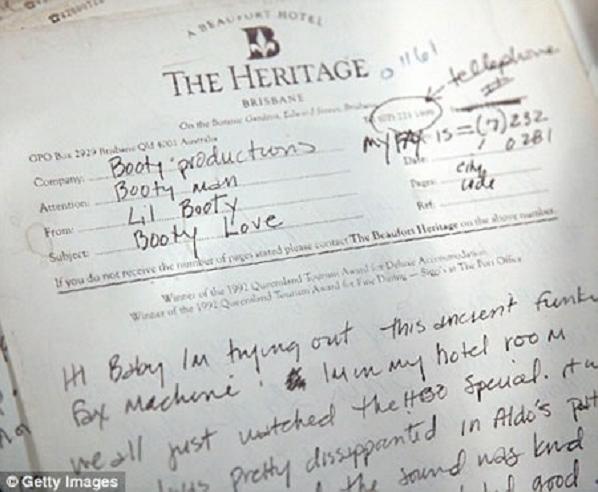 A BEAUFORT HOTEL
B
THE HERITAGE
BRISBANE
011 61
telephone
On the Botanic Gardens, Edward Street, Brisbane
GPO Box 2929 Brisbane Qld 4001 Australia
my FAX is = (7) 232
0281
Company: Booty productions
Attention: Booty man
From: Lil Booty
Subject: Booty Love
Date:
Pages:
city
code
Ref:
If you do not receive the number of pages stated please contact The Beaufort Heritage on the above number.
Winner of the 1992 Queensland Tourism Award for Deluxe Accommodation
Winner of the 1992 Queensland Tourism Award for Fine Dining — Siggi's at The Port Office
Hi Baby Im trying out this ancient funky
Fax Machine! Im in my hotel room
we all just watched the HBO Special. It w
was pretty dissappointed in Aldo's
the sound was kind
good
© Getty Images